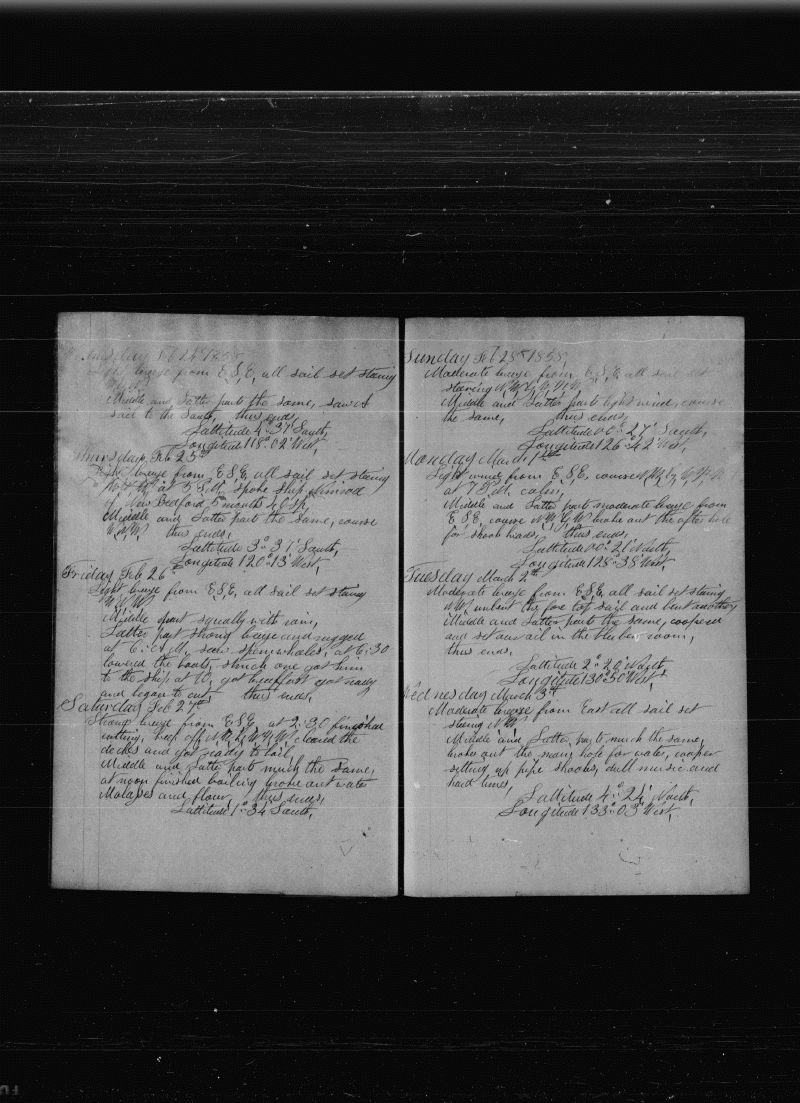 Wednesday Feb 24th 1858
Light breeze from E,S,E, all sail set staring
Middle and Latter parts the same, saw a
sail to the South, thus ends,
Lattitude 4°31' South,
Longitude 118°02' West,
Thursday, Feb 25th
breeze from E S E, all sail set staring
at 5 P.M. spoke Ship Nimrod
of New Bedford 5 months 40 Sp,
Middle and Latter part the same, course
W,N,W thus ends,
Lattitude 3°31' South,
Longitude 120°13' West,
Friday Feb 26
Light breeze from E,S,E, all sail set staring
W,N,W
Middle part squally with rain,
Latter part strong breeze and rugged
at 6. A,M, saw spermwhales, at 6:30
lowered the boats, struck one got him
to the ship at 10, got breakfast got ready
and began to cut, thus ends,
Saturday Feb 27th
Strong breeze from E S E, at 2:30 finished
cutting, keep off cleared the
decks and got ready to boil,
Middle and Latter parts much the same,
at noon finished boiling broke out water
Molases and flour, thus ends,
Lattitude 1°34 South,
Sunday Feb 28th 1858,
Moderate breeze from E,S,E, all sail set
staring
Middle and Latter parts light wind, course
the same, thus ends,
Lattitude 00°27' South,
Longitude 126°42' West,
Monday March 1st
Light wind from E,S,E, course
at 7 P.M. calm,
Middle and Latter parts moderate breeze from
E S E, course broke out the after hole
for shook heads, thus ends,
Lattitude 00°21' North,
Longitude 128°38' West,
Tuesday March 2th
Moderate breeze from E,S,E, all sail set staring
NW, unbent the fore top sail and bent another
Middle and Latter parts the same, coopered
and set our oil in the blubber room,
thus ends,
Lattitude 2°20' North,
Longitude 130°50' West,
Wednesday March 3th
Moderate breeze from East all sail set
staring NW
Middle and Latter parts much the same,
broke out the main hole for water, cooper
setting up pipe shooks, dull music and
hard times,
Lattitude 4°24' North,
Longitude 133°03' West,